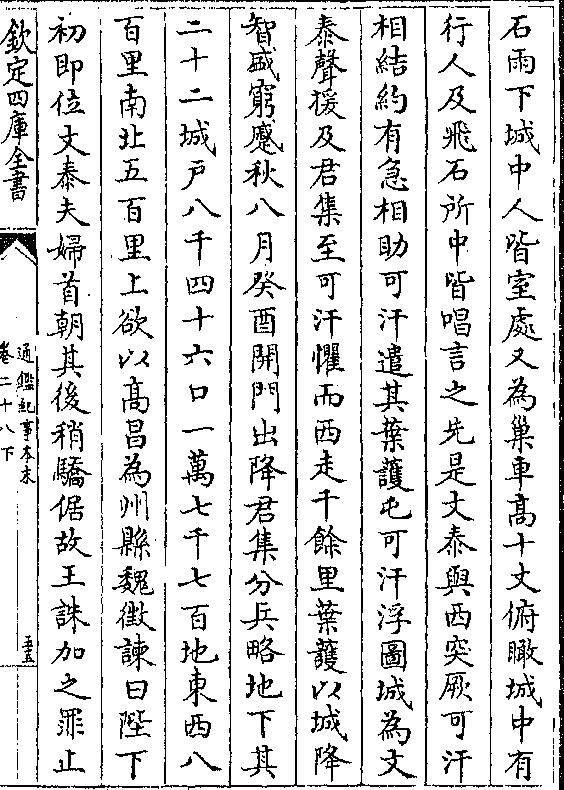 石雨下城中人皆室處又為巢車高十丈俯瞰城中有
行人及飛石所中皆唱言之先是文泰與西突厥可汗
相結約有急相助可汗遣其葉護屯可汗浮圖城為文
泰聲援及君集至可汗懼而西走千餘里葉護以城降
智盛窮蹙秋八月癸酉開門出降君集分兵略地下其
二十二城戸八千四十六口一萬七千七百地東西八
百里南北五百里上欲以髙昌為州縣魏徵諫曰陛下
初即位文泰夫婦首朝其後稍驕倨故王誅加之罪止
欽定四庫全書
通鑑紀事本末
卷二十八下
五五